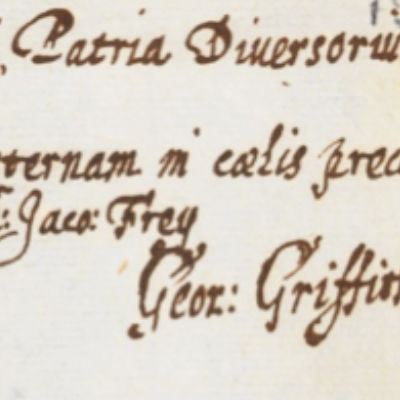 Patria Diversoru
ternam in cælis prec
: Jaco: Frey
Geor: Griffit